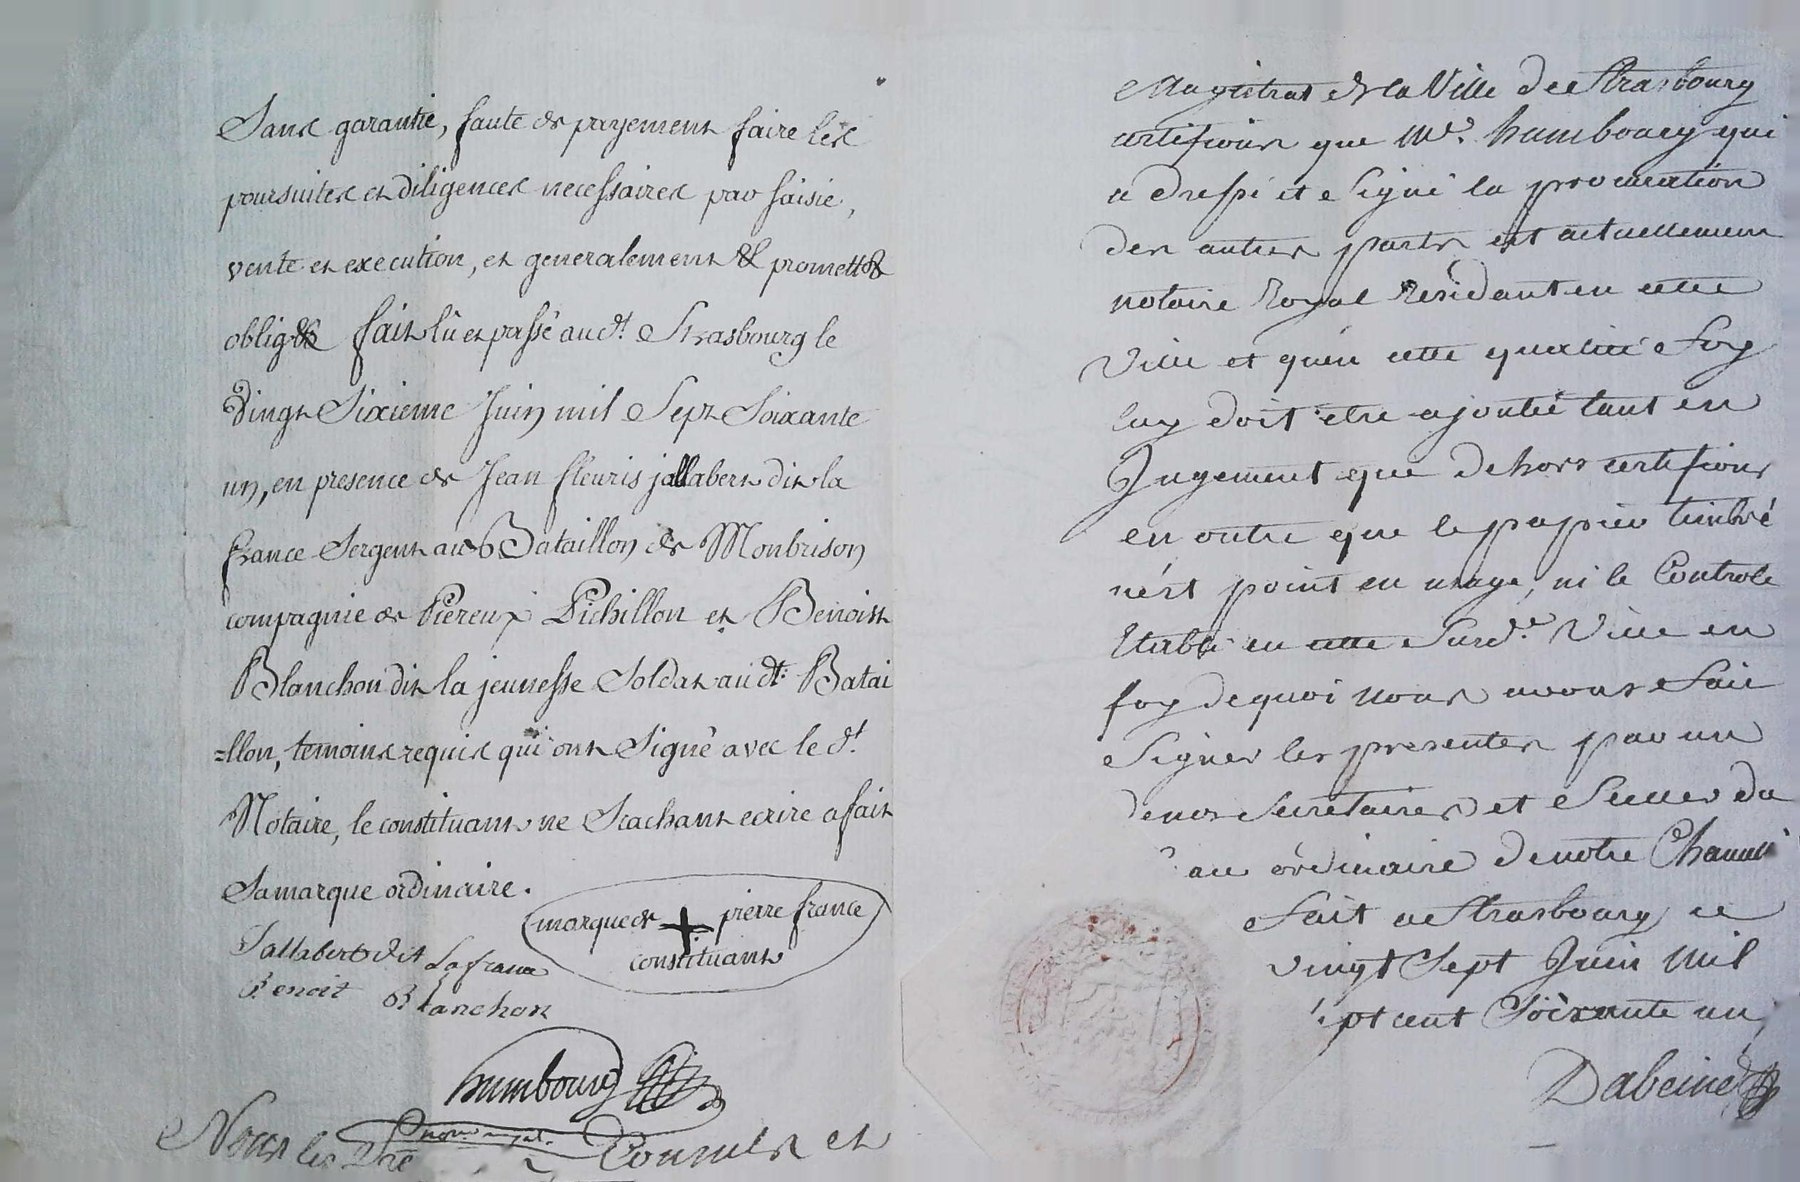 Sans garantie, faute de payement faire les
poursuites et diligences necessaires par saisie,
vente et execution, et generalement &c promett&c
oblig&c fait lû et passé aud.t Strasbourg le
Vingt Sixieme Juin mil Sept Soixante
un, en presence de Jean fleuris jallabert dit la
france Sergent au Bataillon de Monbrison
compagnie de Piereux Pichillon et Benoist
Blanchon dit la jeunesse Soldat audt: Batai
=llon, temoins requis qui ont Signé avec le d.t
Notaire, le constituant ne Scachant ecrire a fait
Sa marque ordinaire.
marque de + pierre france
constituant
Jallabert dit Lafrance
Benoit Blanchon
humbourg
not. royal.
Nous les Consuls et
Magistrat de la Ville de Strasbourg
certifions que Me. humbourg qui
a dressé et Signé la procuration
des autres parts est actuellement
notaire Royal Residant en cette
Ville et qu'en cette qualité Foy
luy doit etre ajoutée tant en
Jugement que dehors certifions
en outre que le papier timbré
n'est point en usage, ni le Controle
Etabli en cette Susd.e Ville en
foy dequoi nous avons Fait
Signer les presentes par un
denos Secretaires et Sceller du
au ordinaire denotre
Fait a Strasbourg ce
vingt Sept Juin Mil
Sept cent Soixante un,